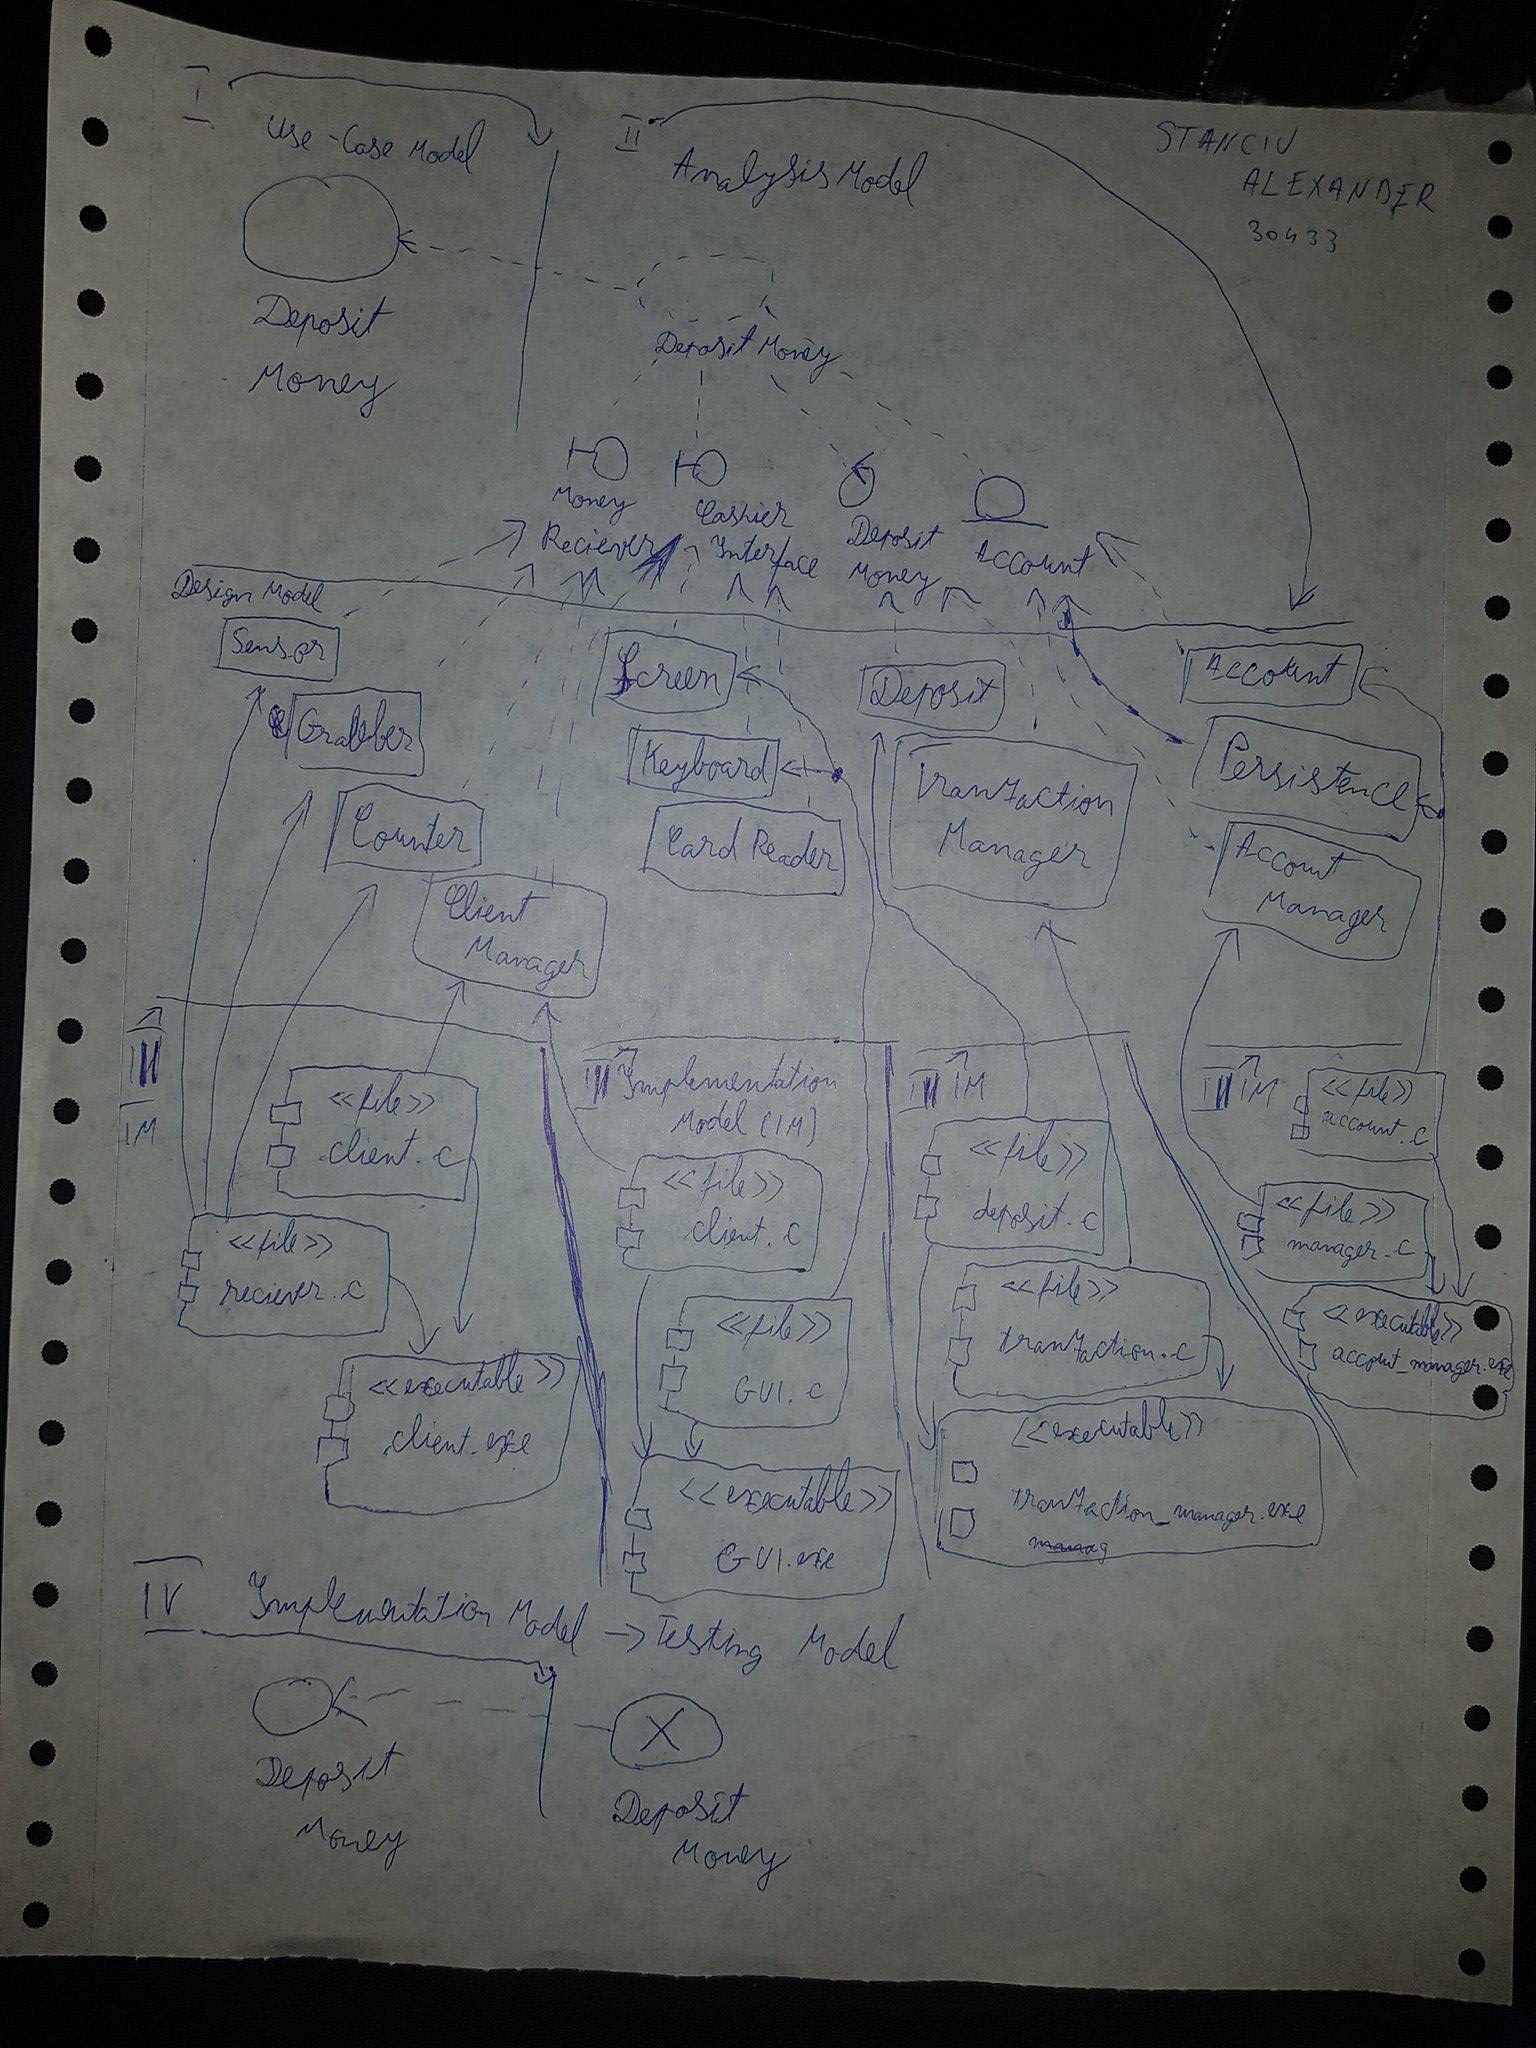 I
Use-Case Model
II
Analysis Model
STANCIU
ALEXANDER
30433
Deposit
Money
Deposit Money
Money
Reciever
Cashier
Interface
Deposit
Money
Account
Design Model
Sensor
Grabber
Counter
Client
Manager
Screen
Keyboard
Card Reader
Deposit
Transaction
Manager
Account
Persistence
Account
Manager
III
IM
<<file>>
client.c
<<file>>
reciever.c
<<executable>>
client.exe
III Implementation
Model (IM)
<<file>>
client.c
<<file>>
GUI.c
<<executable>>
GUI.exe
III IM
<<file>>
deposit.c
<<file>>
transaction.c
<<executable>>
transaction_manager.exe
III IM
<<file>>
account.c
<<file>>
manager.c
<<executable>>
account_manager.exe
IV Implementation Model → Testing Model
Deposit
Money
X
Deposit
Money